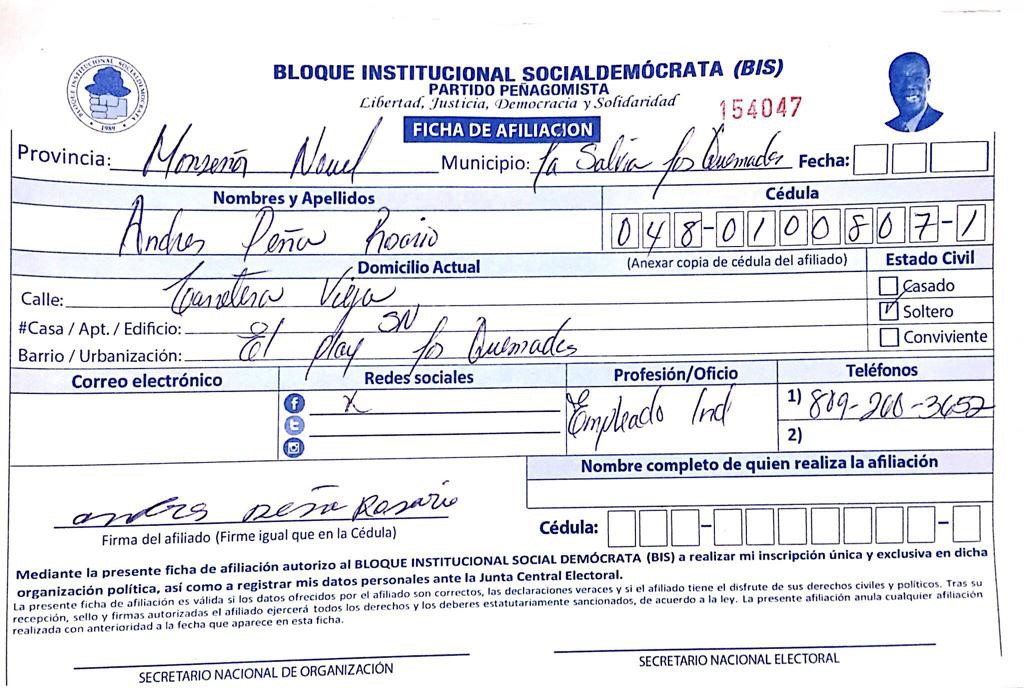 BLOQUE INSTITUCIONAL SOCIALDEMÓCRATA (BIS)
PARTIDO PEÑAGOMISTA
Libertad, Justicia, Democracia y Solidaridad
154047
BLOQUE INSTITUCIONAL SOCIALDEMOCRATA
1989
FICHA DE AFILIACION
Provincia: Monseñor Nouel Municipio: la Salvia los Quemados Fecha:
Nombres y Apellidos Cédula
Andres Peña Rosario 048-0100807-1
Domicilio Actual (Anexar copia de cédula del afiliado) Estado Civil
Calle: Carretera Vieja Casado
#Casa / Apt. / Edificio: SN Soltero
Barrio / Urbanización: El play los Quemados Conviviente
Correo electrónico Redes sociales Profesión/Oficio Teléfonos
x Empleado Ind 1) 809-260-3652
2)
Nombre completo de quien realiza la afiliación
andres peña Rosario
Firma del afiliado (Firme igual que en la Cédula) Cédula:
Mediante la presente ficha de afiliación autorizo al BLOQUE INSTITUCIONAL SOCIAL DEMÓCRATA (BIS) a realizar mi inscripción única y exclusiva en dicha
organización política, así como a registrar mis datos personales ante la Junta Central Electoral.
La presente ficha de afiliación es válida si los datos ofrecidos por el afiliado son correctos, las declaraciones veraces y si el afiliado tiene el disfrute de sus derechos civiles y políticos. Tras su
recepción, sello y firmas autorizadas el afiliado ejercerá todos los derechos y los deberes estatutariamente sancionados, de acuerdo a la ley. La presente afiliación anula cualquier afiliación
realizada con anterioridad a la fecha que aparece en esta ficha.
SECRETARIO NACIONAL DE ORGANIZACIÓN SECRETARIO NACIONAL ELECTORAL